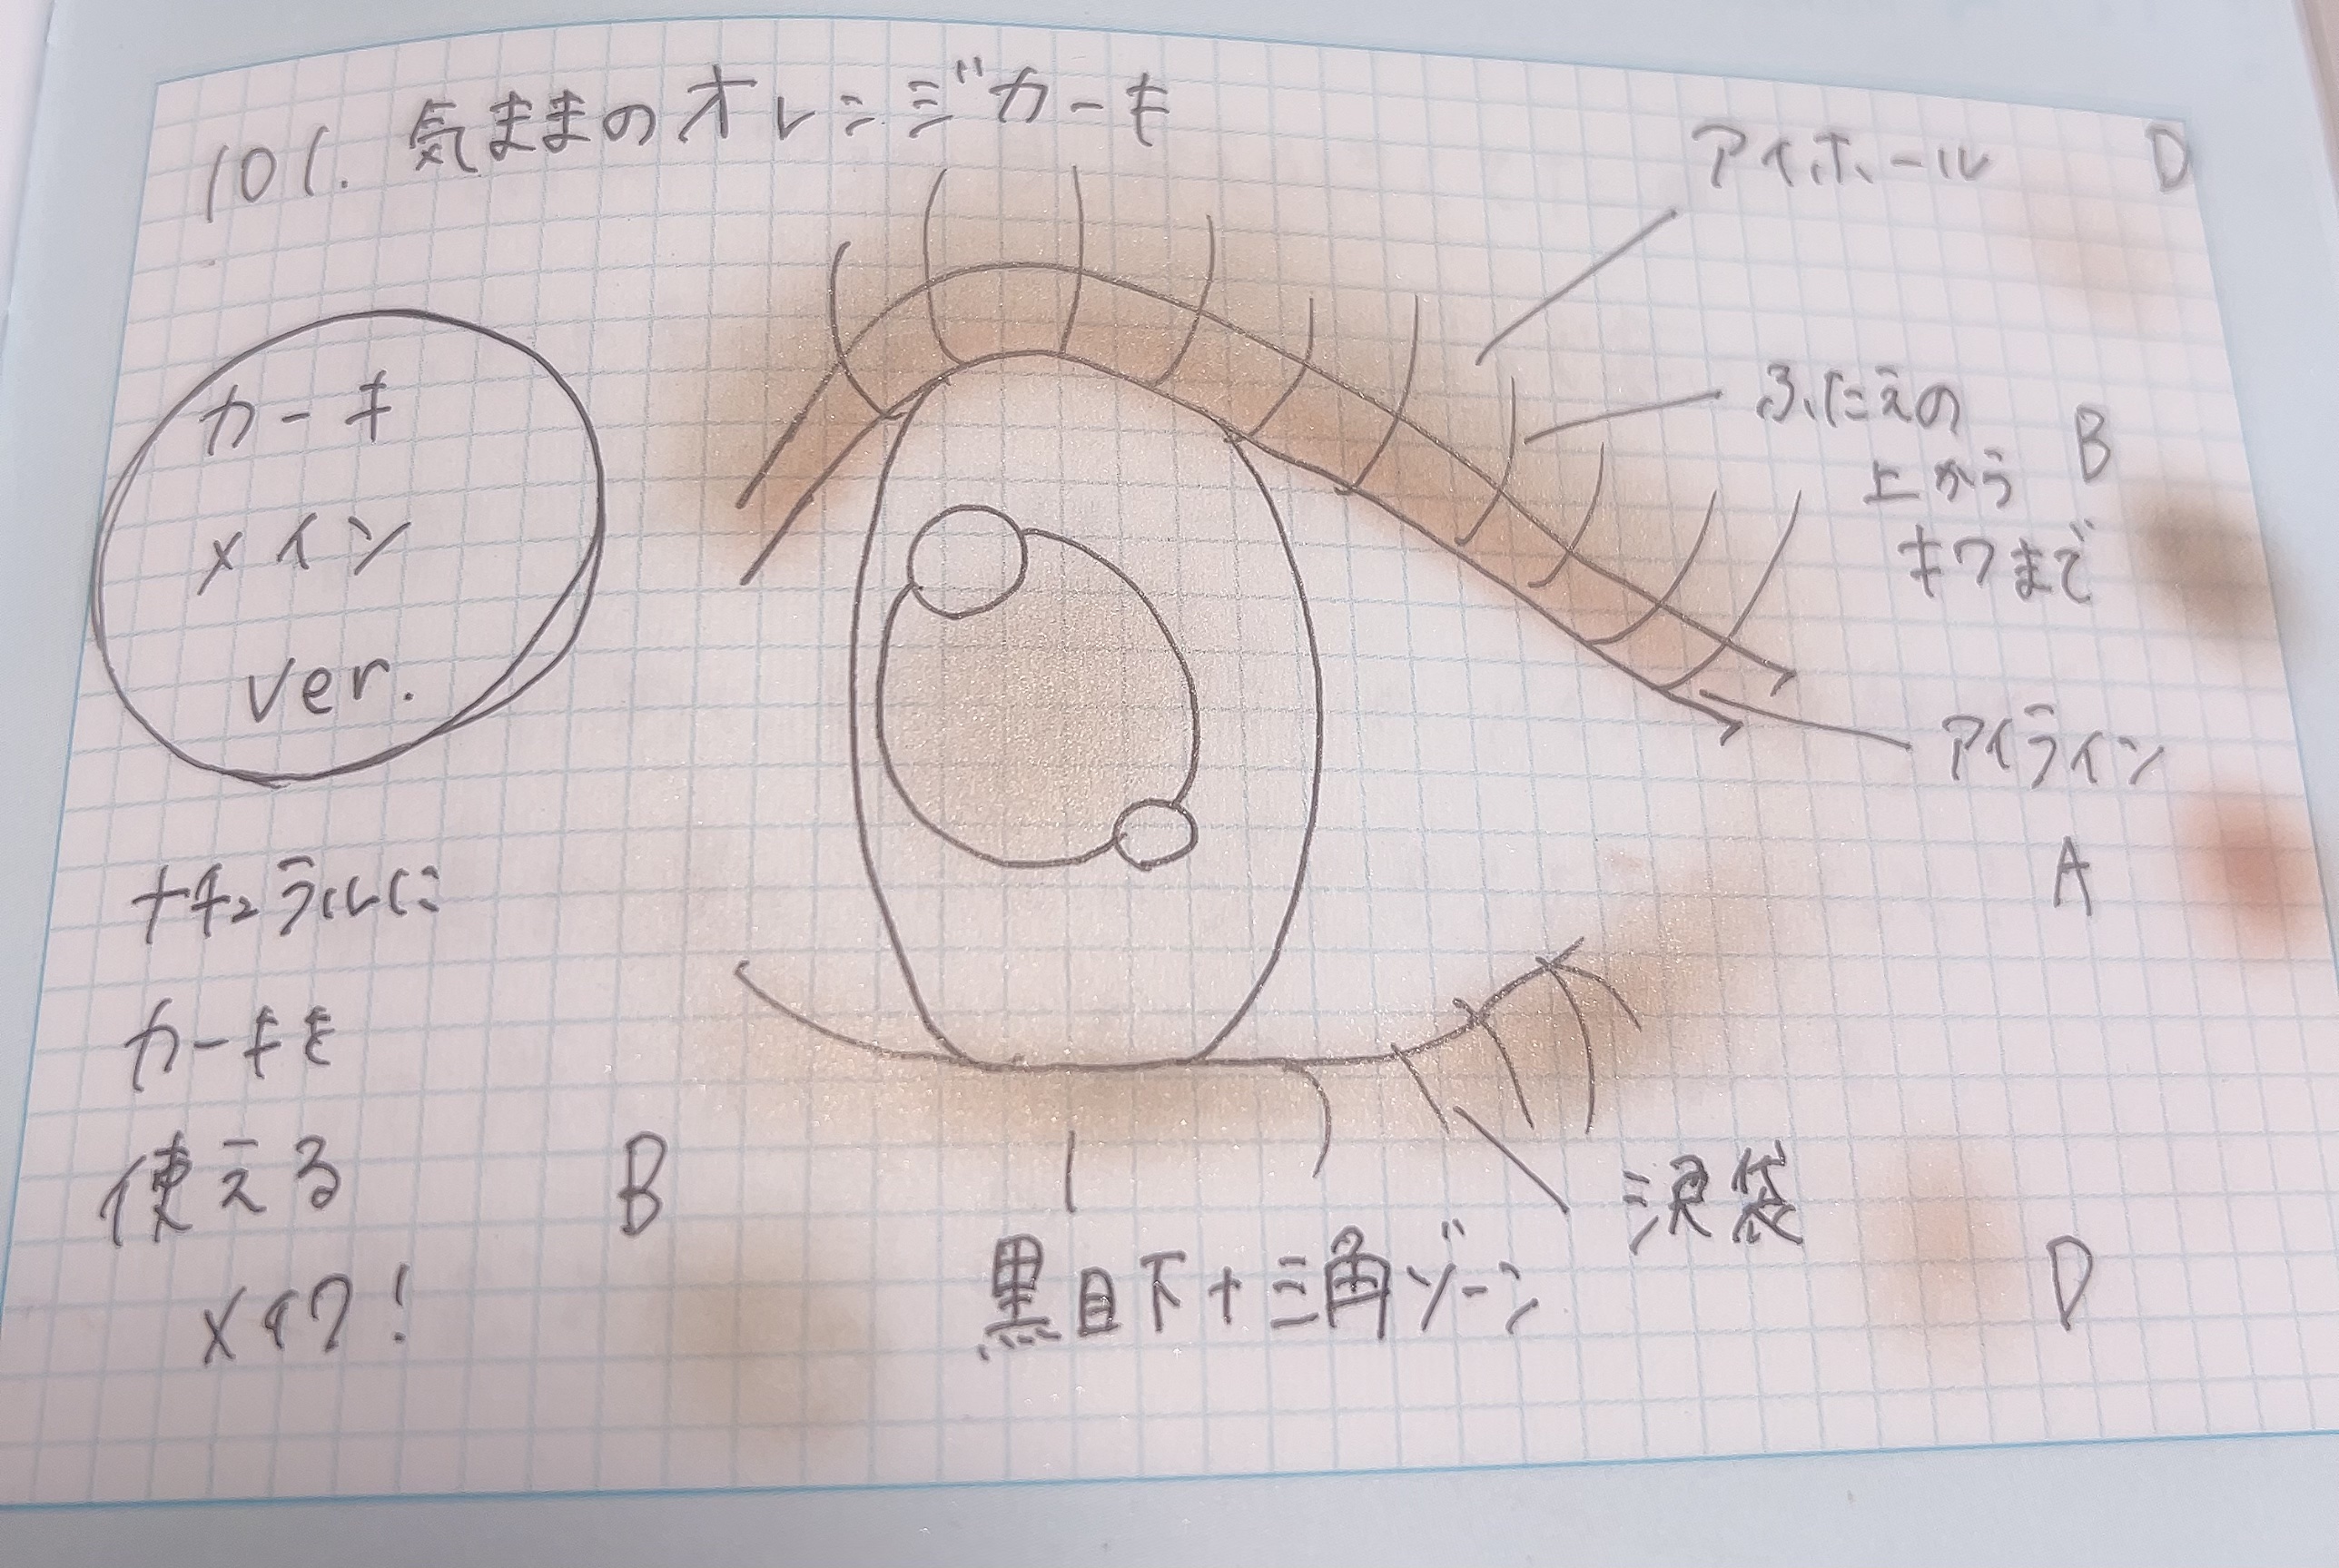 101. 気ままのオレンジカーキ
アイホール D
カーキ
メイン
ver.
ふたえの
上から B
キワまで
アイライン
A
ナチュラルに
カーキを
使える
メイク!
B
黒目下+三角ゾーン
涙袋
D